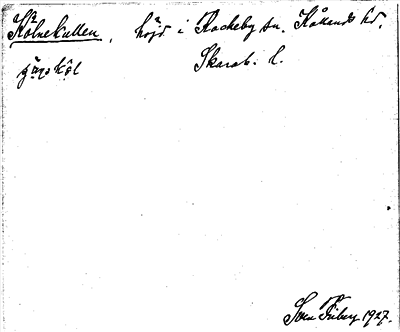 Kölnekullen, höjd i Rackeby sn. Kållands hd.
Skarab. l.
Sven Friberg 1927.